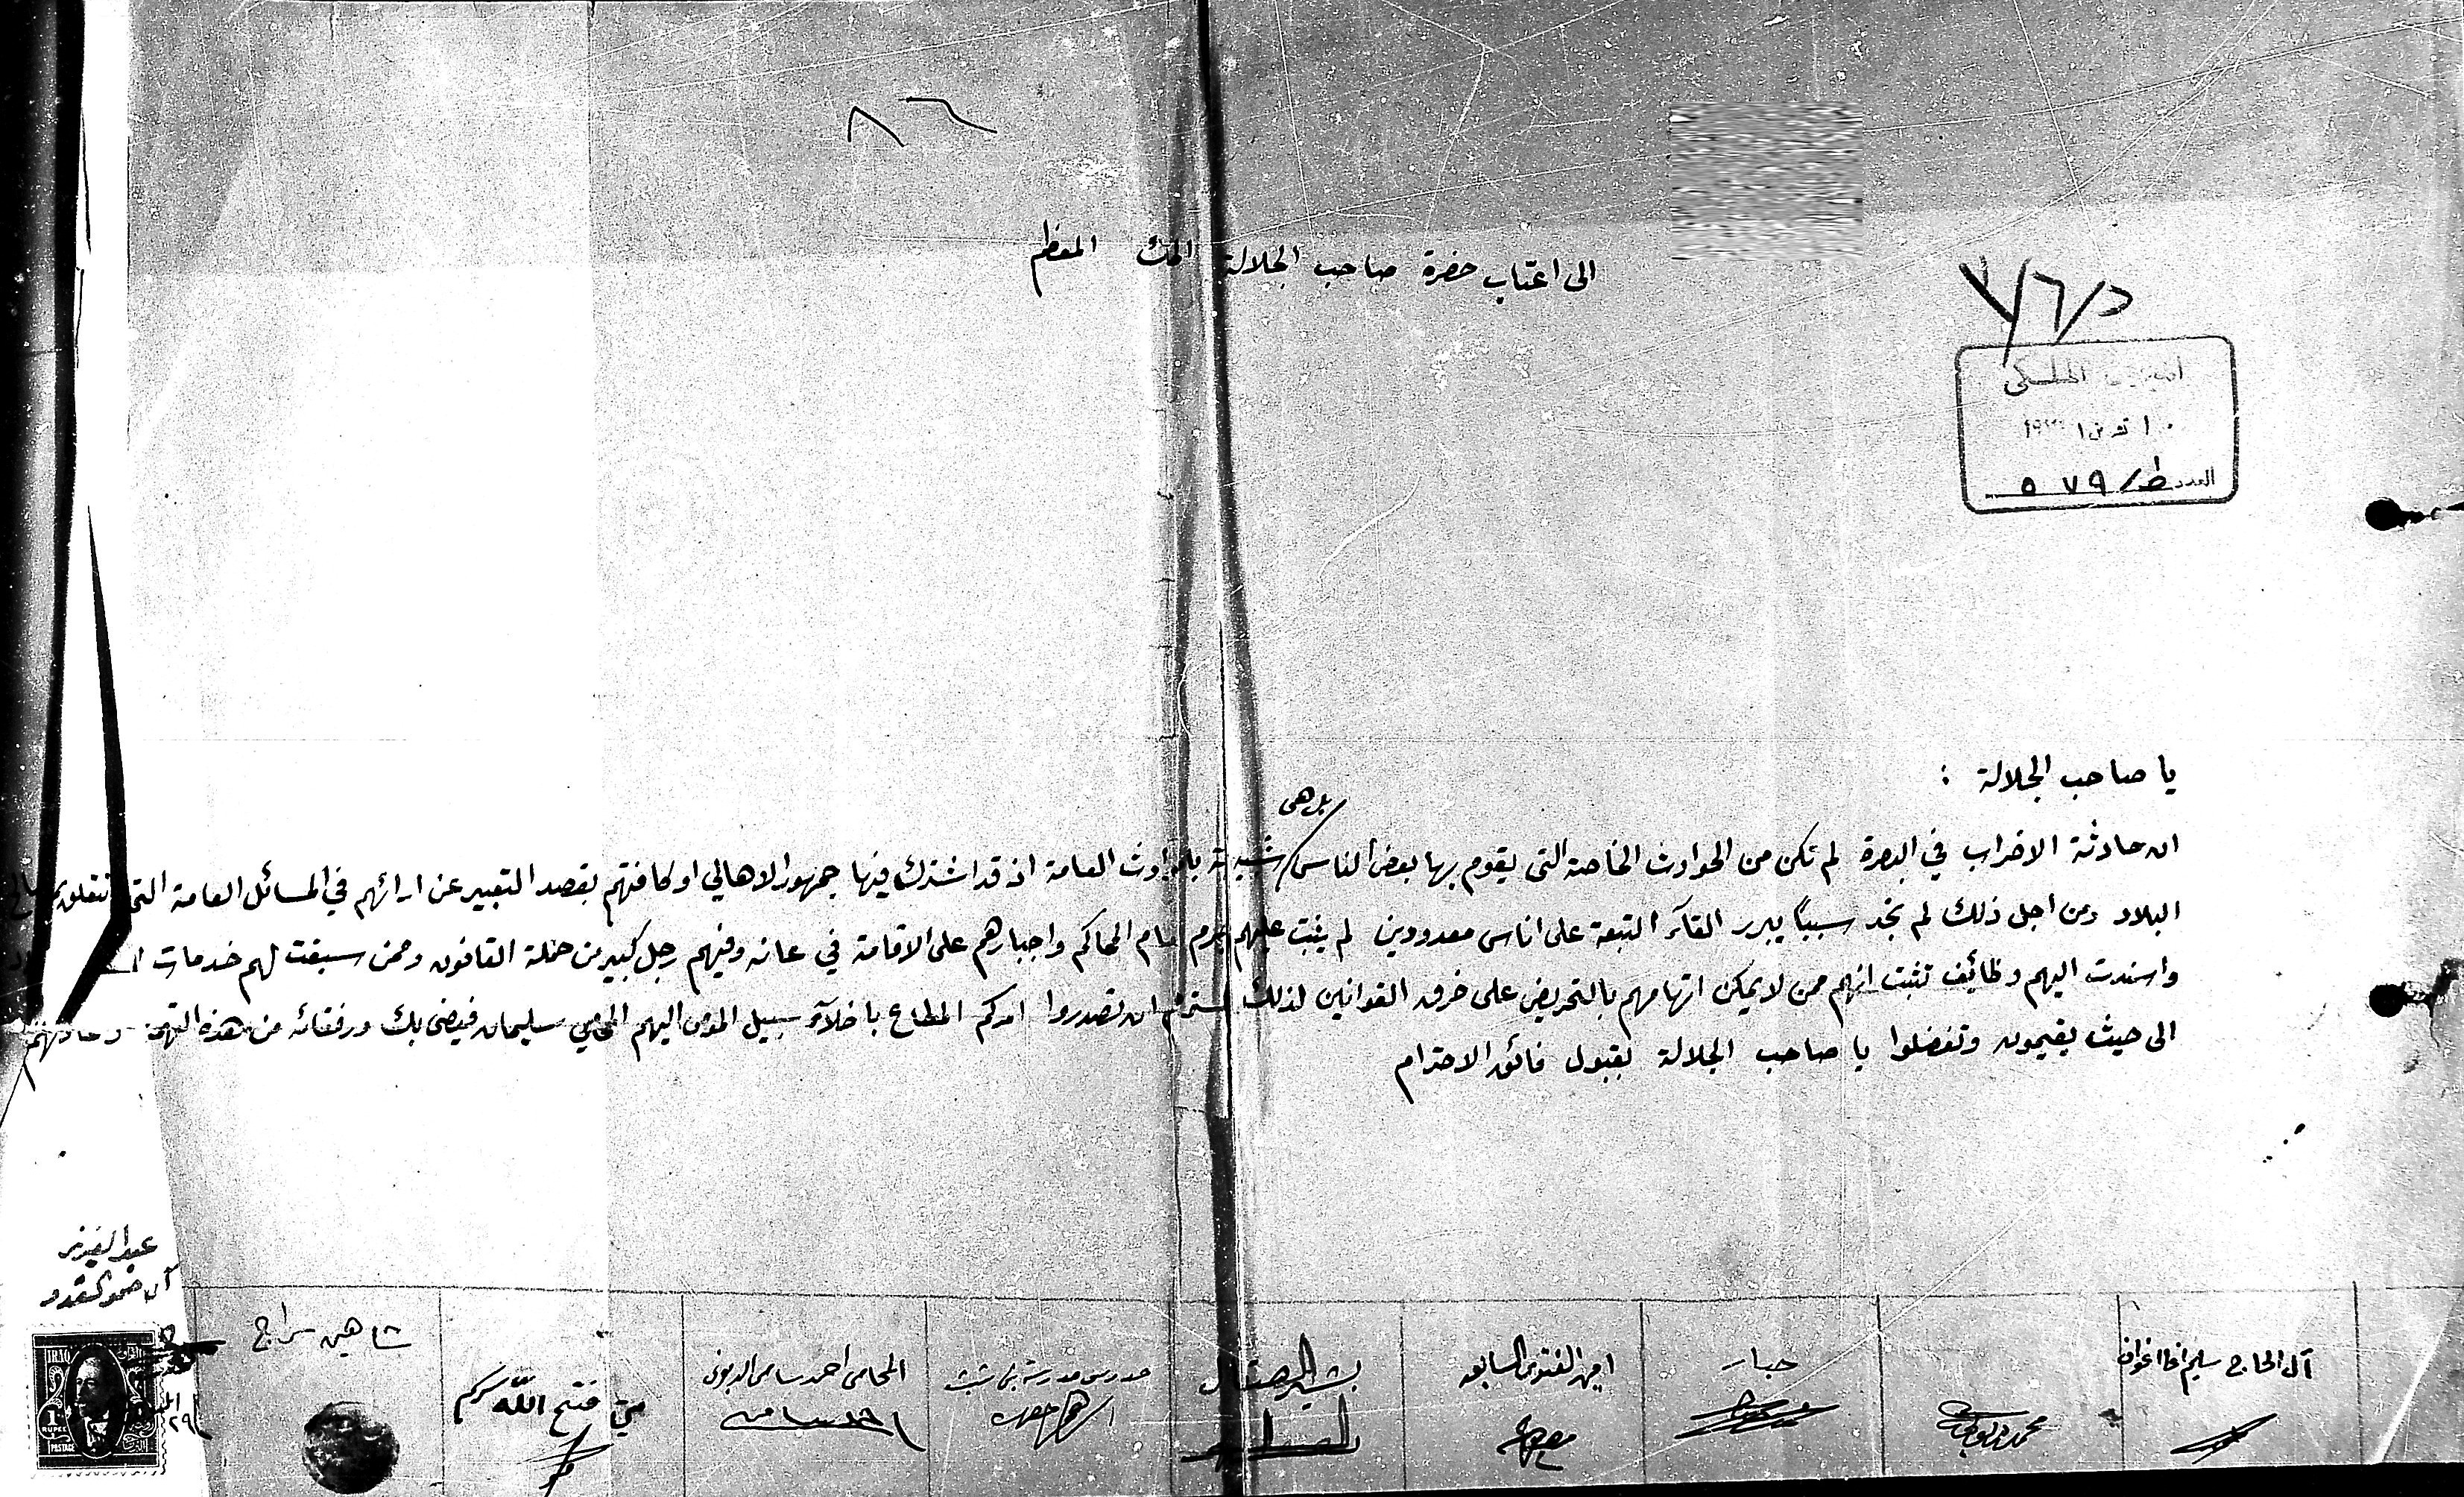 ٨٦
الى اعتاب حضرة صاحب الجلالة الملك المعظم
د/٦/٧
الملكي
١٠ تشرين ١
العدد ط/٥٧٩
يا صاحب الجلالة :
ان حادثة الاضراب في البصرة لم تكن من الحوادث الخاصة التي يقوم بها بعض الناس بل هي شبيهة بالحوادث العامة اذ قد اشترك فيها جمهور الاهالي او كافتهم بقصد التعبير عن ارائهم في المسائل العامة التي تتعلق
البلاد ومن اجل ذلك لم نجد سبباً يبرر القآء التبعة على اناس معدودين لم يثبت عليهم جرم امام المحاكم واجبارهم على الاقامة في عانه وفيهم رجل كبير من حملة القانون وممن سبقت لهم خدمات
واسندت اليهم وظائف تثبت انهم ممن لا يمكن اتهامهم بالتحريض على خرق القوانين لذلك نسترحم ان تصدروا امركم المطاع باخلآء سبيل المومى اليهم المحامي سليمان فيضي بك ورفقائه من هذه التهمة واعادتهم
الى حيث يقيمون وتفضلوا يا صاحب الجلالة بقبول فائق الاحترام
آل الحاج سليم اغا اغوان
محمد
جبار
امين الفتوى السابق
بشير
مدرس مدرسة نبي شيت
المحامي احمد سامي الدبوني
احمد سامي
متي فتح الله سرسم
شاهين سراج
عبد العزيز
آل حمو القدو
IRAQ
1 RUPEE
POSTAGE